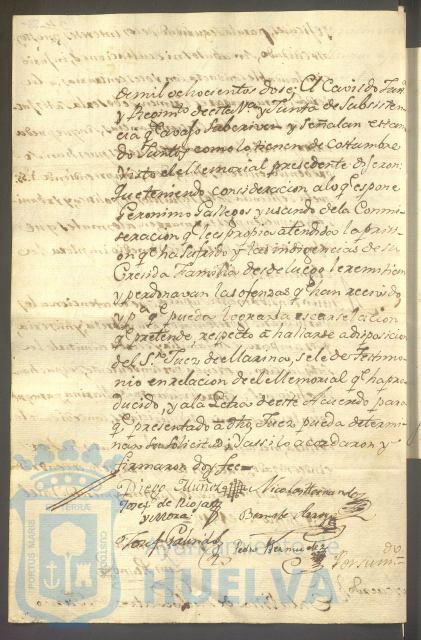 de mil ochocientos dose; El Cavildo Just.ª
y Regim.to de esta V.ª y Junta de Subsisten
cia q.e vajo Suberiven y Señalan estan
do Juntos como lo tienen de costumbre
Visto el Memorial presedente dijeron:
Que teniendo consideracion a lo q.e espone
Geronimo Gallegos y usando de la Commi
seracion q.e les es propia atendido la pris
on q.e ha Sufrido y las indigencias de su
Cresida Familia desde luego le remitian
y perdonavan las ofensas q.e han recivido
y p.ª q.e pueda lograr la escarselacion
q.e pretende, respecto a hallarse a disposicion
del S.or Juez de Marina, sele de Testimo
nio en relacion de el Memorial q.e ha pro
ducido, y a la Letra de este Acuerdo para
q.e presentado a dho Juez pueda determi
nar su solicitud; Y assi lo acordaron y
firmaron doy fee=
Diego Muñiz
Nicolas Hernando
Josef de Rioja
y Mora
Bernabe
Josef Galindo
Pedro Bermudez
PORTUS MARIS
ET TERRAE
CUSTODIA
Ayuntamiento de
HUELVA